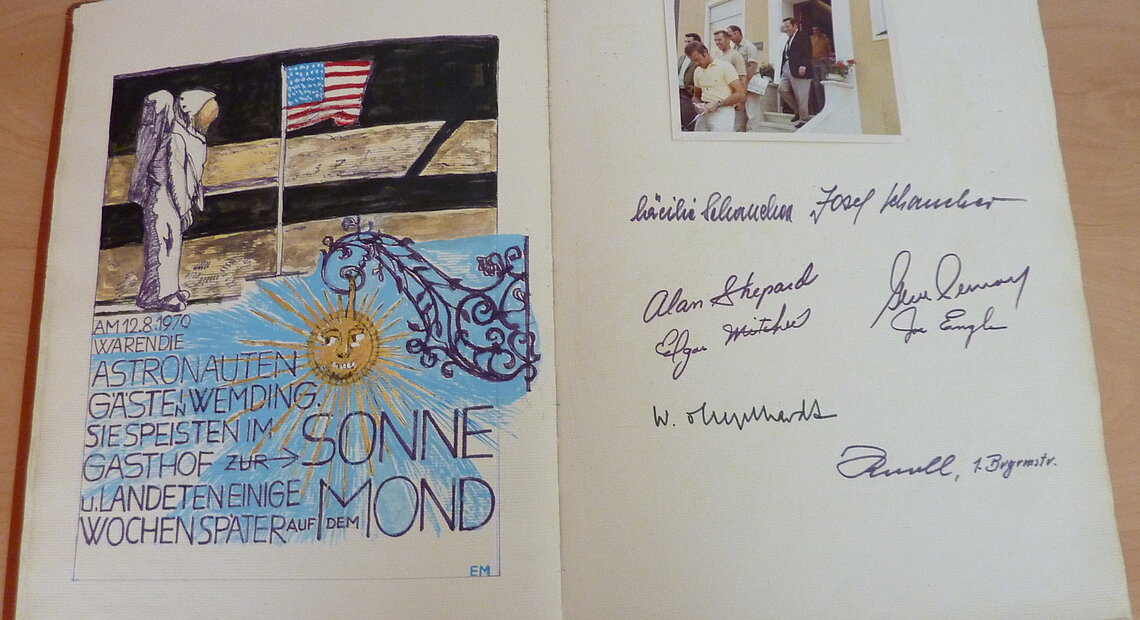 AM 12.8.1970
WAREN DIE
ASTRONAUTEN
GÄSTE IN WEMDING.
SIE SPEISTEN IM
GASTHOF ZUR → SONNE
U. LANDETEN EINIGE
WOCHEN SPÄTER AUF DEM MOND
EM
Cäcilie Schaucher Josef Schaucher
Alan Shepard
Edgar Mitchell
Gene Cernan
Joe Engle
W. v. Engelhardt
1. Bürgermstr.